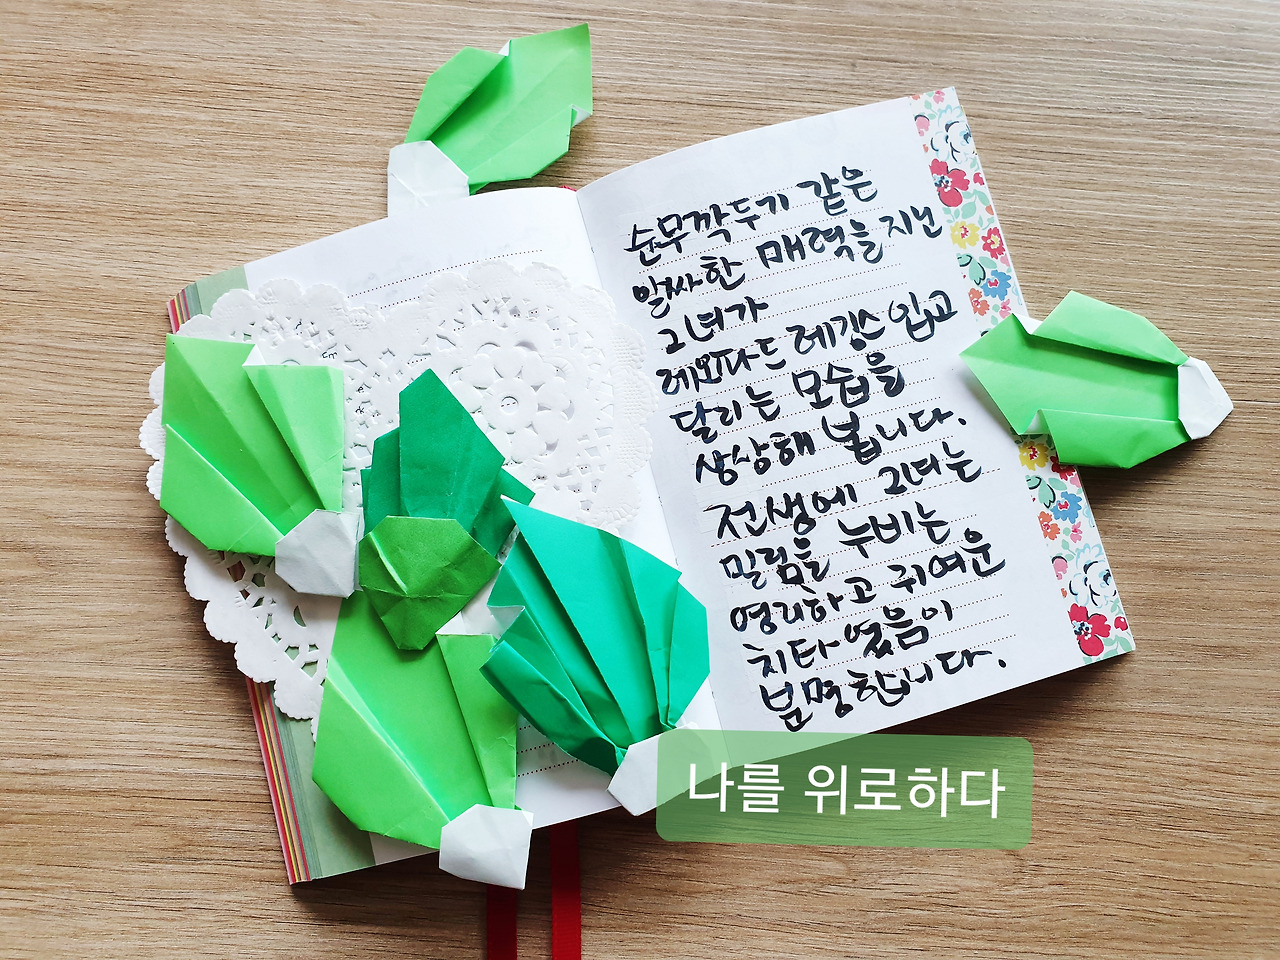 순무깍두기 같은
알싸한 매력을 지닌
그녀가
레오파드 레깅스 입고
달리는 모습을
상상해 봅니다.
전생에 그녀는
밀림을 누비는
영리하고 귀여운
치타였음이
분명합니다.
나를 위로하다